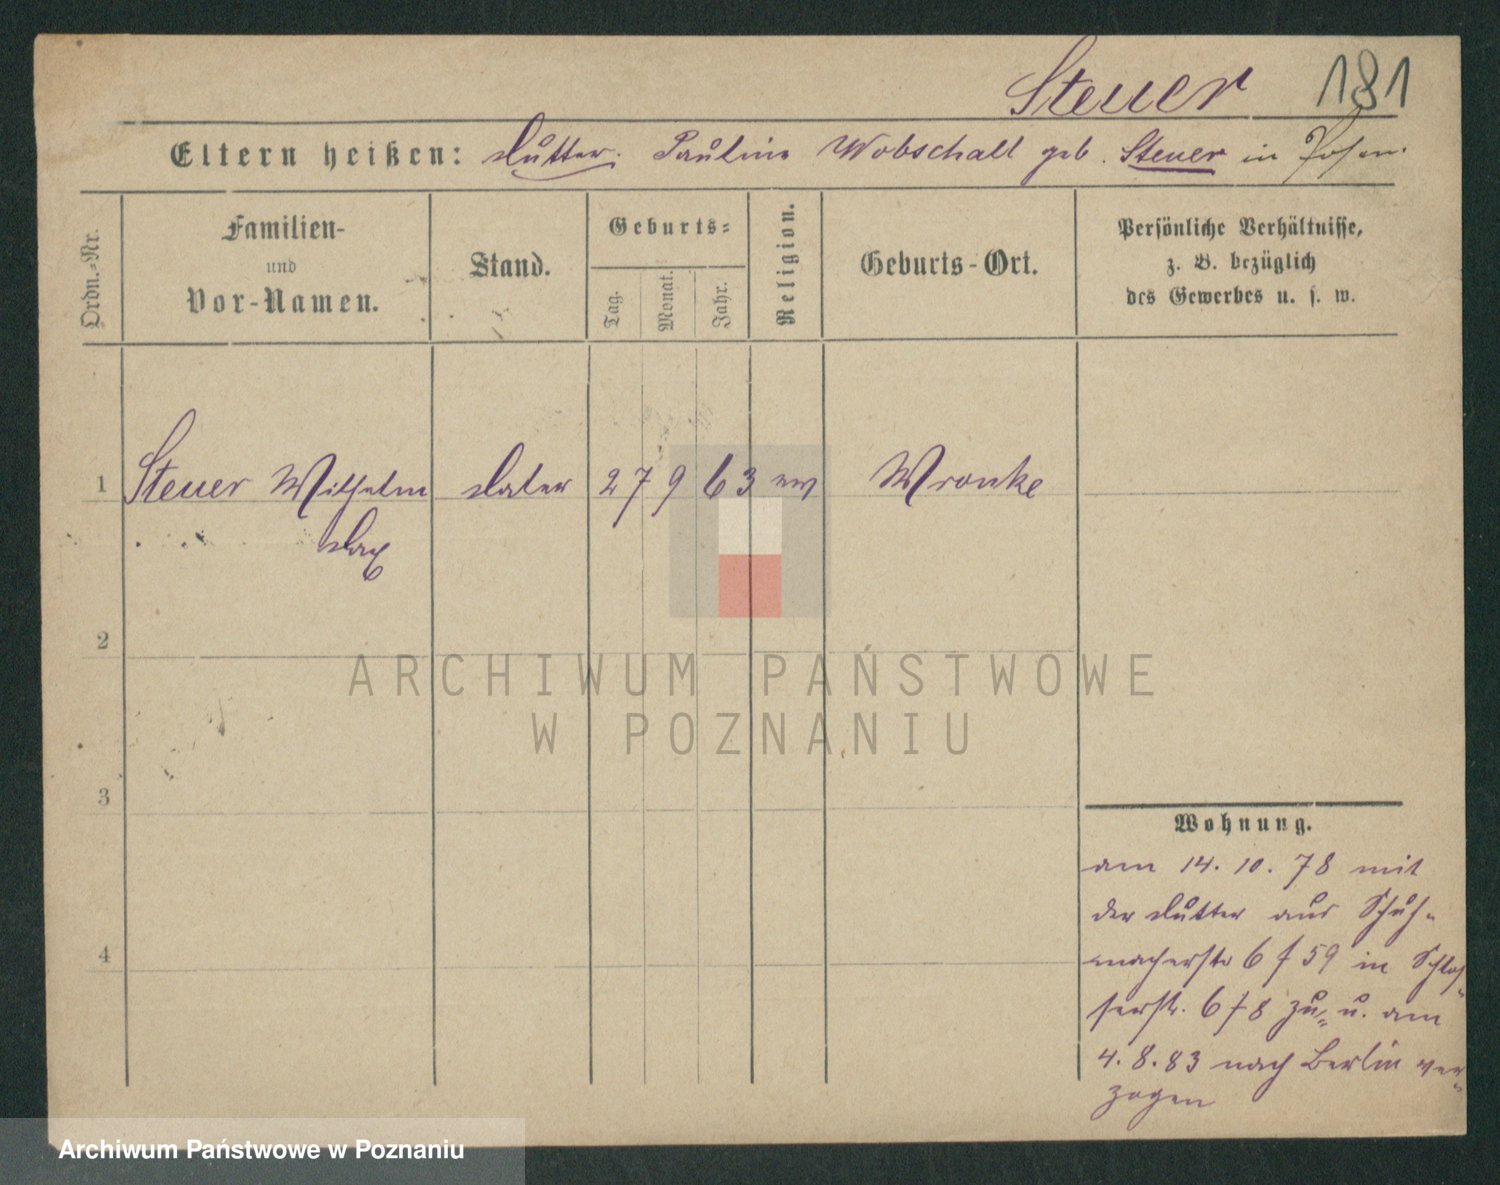 Steuer 181
Eltern heißen: Mutter: Pauline Wobschall geb. Steuer in Posen.
Ordn.-Nr.
Familien-
und
Vor-Namen.
Stand.
Geburts-
Tag.
Monat.
Jahr.
Religion.
Geburts-Ort.
Persönliche Verhältnisse,
z. B. bezüglich
des Gewerbes u. s. w.
1 Steuer Wilhelm Maler 27 9 63 ev Wronke
Max
2
3
4
Wohnung.
am 14. 10. 78 mit
der Mutter aus Schuh-
macherstr 6 f 59 in Schlos-
serstr. 6 f 8 zu- u. am
4. 8. 83 nach Berlin ver-
zogen
ARCHIWUM PAŃSTWOWE
W POZNANIU
Archiwum Państwowe w Poznaniu